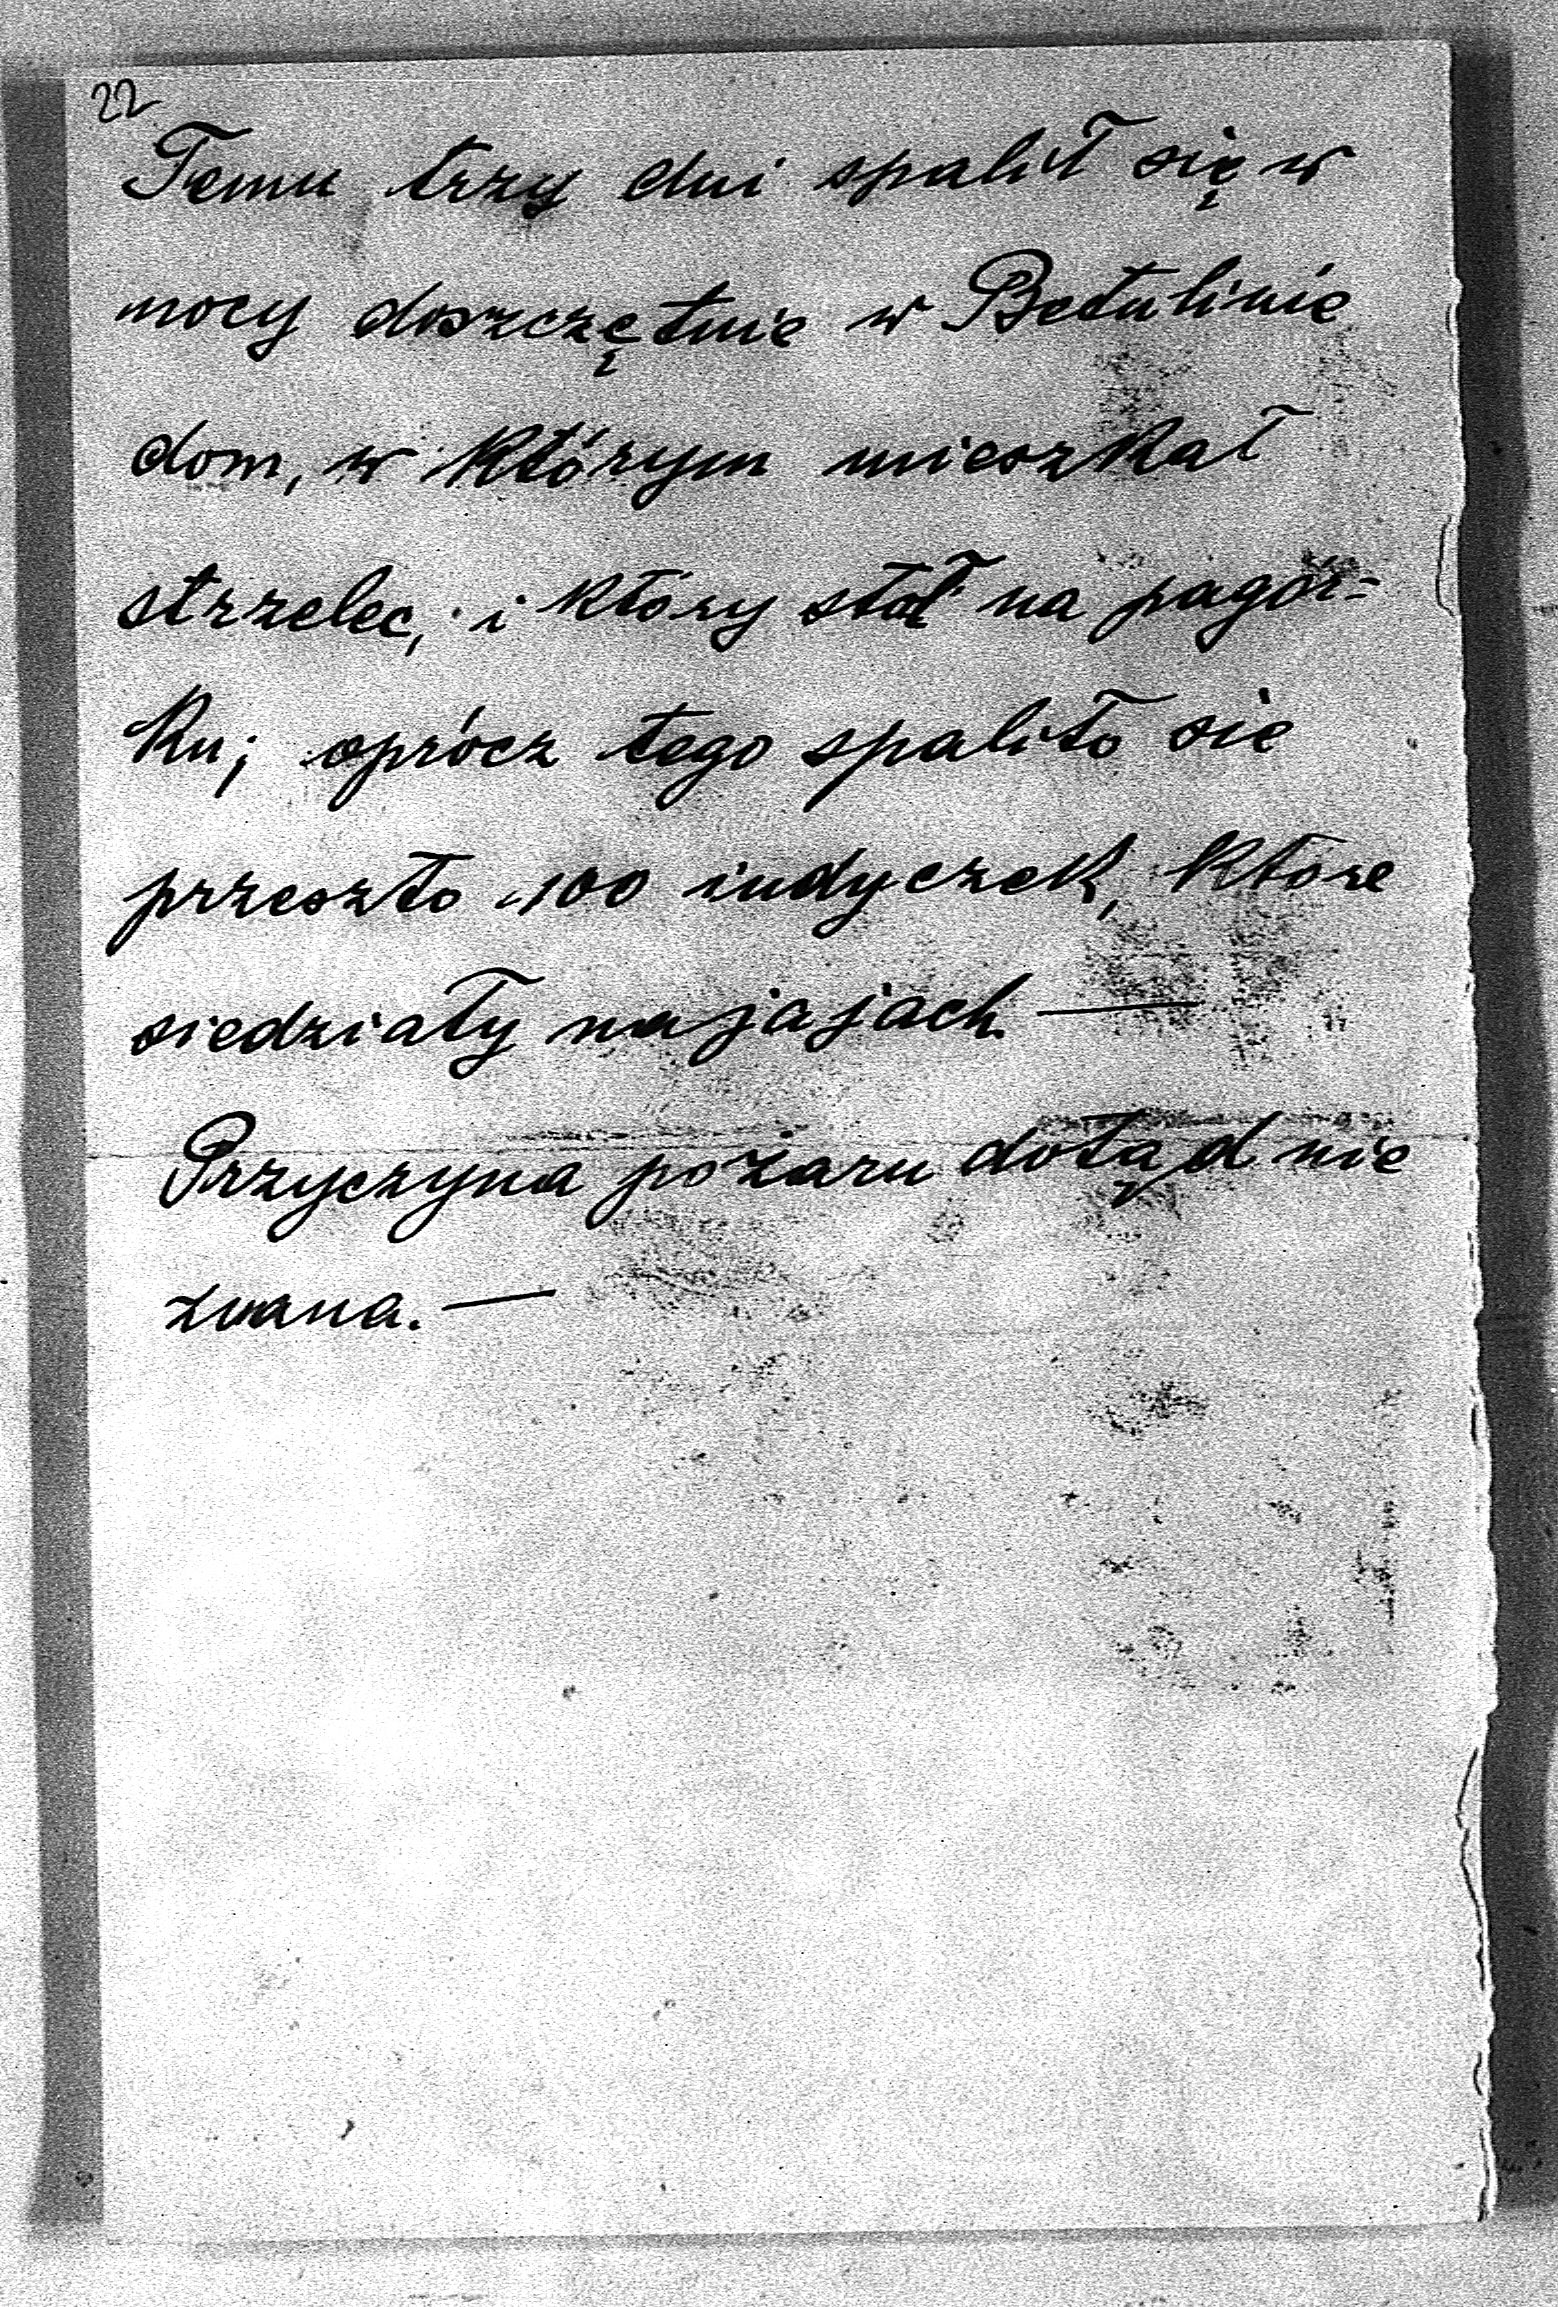 22
Temu trzy dni spalił się w
nocy doszczętnie w Betulinie
dom, w którym mieszkał
strzelec, i który stał na pagór=
ku; oprócz tego spaliło sie
przeszło 100 indyczek, które
siedziały na jajach —
Przyczyna pożaru dotąd nie
znana. —